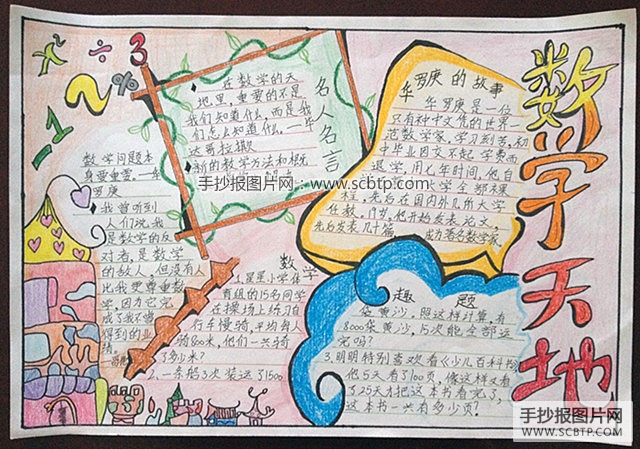 数学天地
÷3
%
-1
名人名言
在数学的天
地里，重要的不是
我们知道什么，而是我
们怎么知道什么。—毕
达哥拉斯
新的数学方法和概
数学问题本
身要重要。—华
罗庚
我曾听到
人们说我
是数学的反
对者，是数学
的敌人，但没有人
比我更尊重数
学，因为它完
成了我不曾
得到的业
绩
华罗庚的故事
华罗庚是一位
只有初中文凭的世界一
流数学家，学习刻苦，初
中毕业因交不起学费而
退学，用七年时间，他自
大学全部课
程，先后在国内外几所大学
任教。19岁，他开始发表论文，
先后发表几十篇，成为著名数学家
数学
趣题
1.星星小学体
育组的15名同学
在操场上练习自
行车慢骑，平均每人
骑800米，他们一共骑
了多少米？
2.一条船3次装运了1500
袋黄沙，照这样计算，有
8000袋黄沙，15次能全部运
完吗？
3.明明特别喜欢看《少儿百科书》
他5天看了100页，像这样又看
了25天才把这本书看完了，
这本书一共有多少页？
手抄报图片网：www.scbtp.com
手抄报图片网
WWW.SCBTP.COM